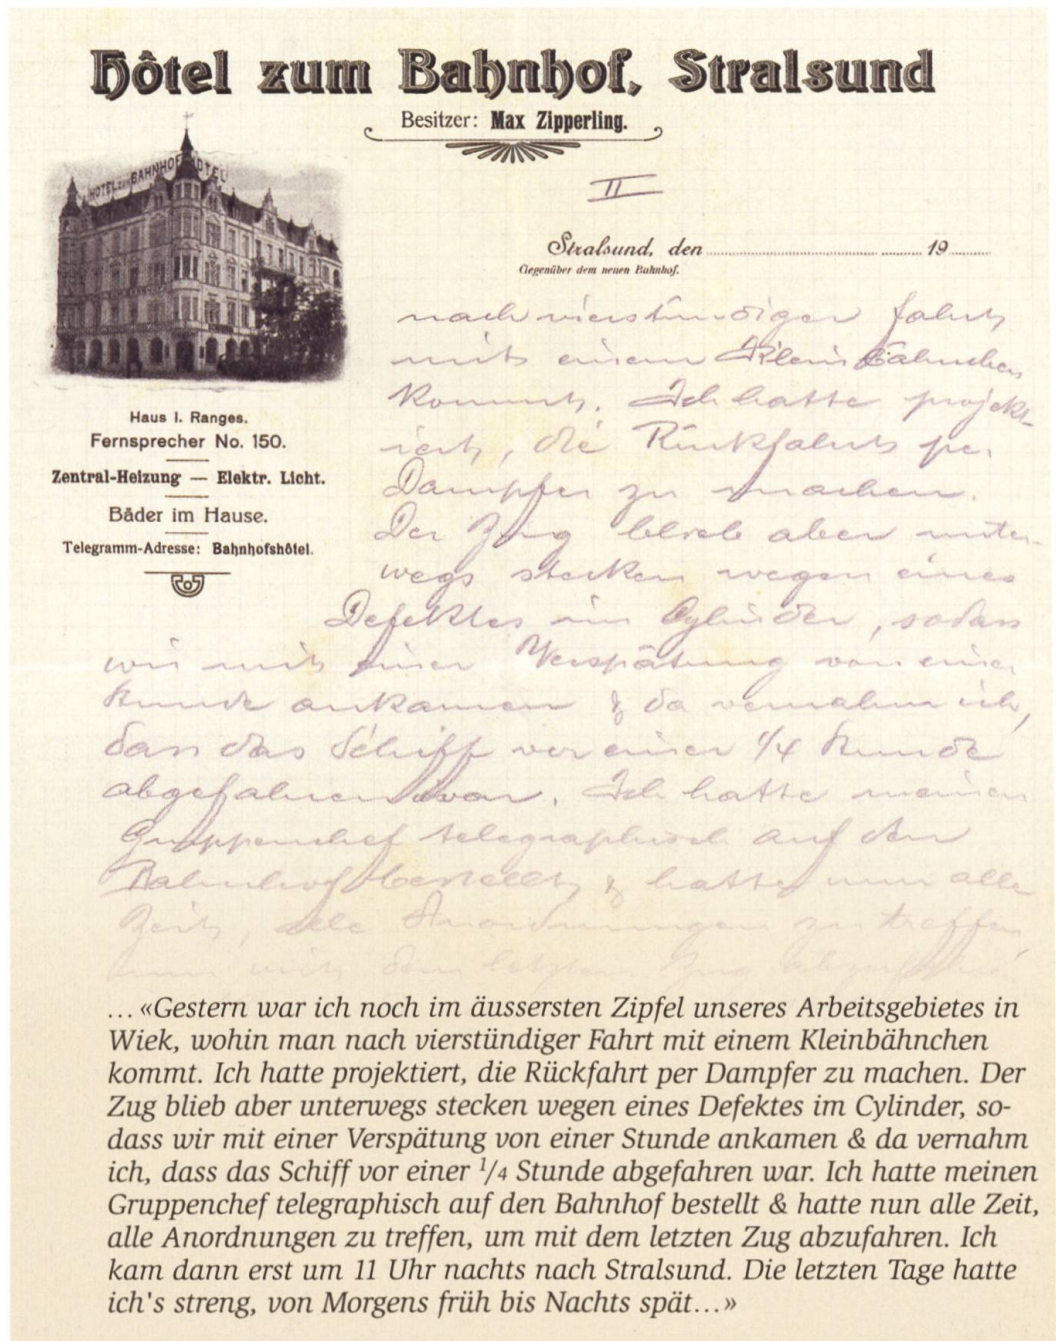 Hôtel zum Bahnhof, Stralsund
Besitzer: Max Zipperling.
HOTEL ZUM BAHNHOF HOTEL
II
Stralsund, den 19
Gegenüber dem neuen Bahnhof.
Haus I. Ranges.
Fernsprecher No. 150.
Zentral-Heizung — Elektr. Licht.
Bäder im Hause.
Telegramm-Adresse: Bahnhofshôtel.
nach vierstündiger Fahrt
mit einem Kleinbähnchen
kommt. Ich hatte projekt-
iert, die Rückfahrt per
Dampfer zu machen.
Der Zug blieb aber unter-
wegs stecken wegen eines
Defektes im Cylinder, sodass
wir mit einer Verspätung von einer
Stunde ankamen & da vernahm ich,
dass das Schiff vor einer 1/4 Stunde
abgefahren war. Ich hatte meinen
Gruppenchef telegraphisch auf den
Bahnhof bestellt & hatte nun alle
Zeit, alle Anordnungen zu treffen
um mit dem letzten Zug abzufahren.
...«Gestern war ich noch im äussersten Zipfel unseres Arbeitsgebietes in
Wiek, wohin man nach vierstündiger Fahrt mit einem Kleinbähnchen
kommt. Ich hatte projektiert, die Rückfahrt per Dampfer zu machen. Der
Zug blieb aber unterwegs stecken wegen eines Defektes im Cylinder, so-
dass wir mit einer Verspätung von einer Stunde ankamen & da vernahm
ich, dass das Schiff vor einer 1/4 Stunde abgefahren war. Ich hatte meinen
Gruppenchef telegraphisch auf den Bahnhof bestellt & hatte nun alle Zeit,
alle Anordnungen zu treffen, um mit dem letzten Zug abzufahren. Ich
kam dann erst um 11 Uhr nachts nach Stralsund. Die letzten Tage hatte
ich's streng, von Morgens früh bis Nachts spät...»